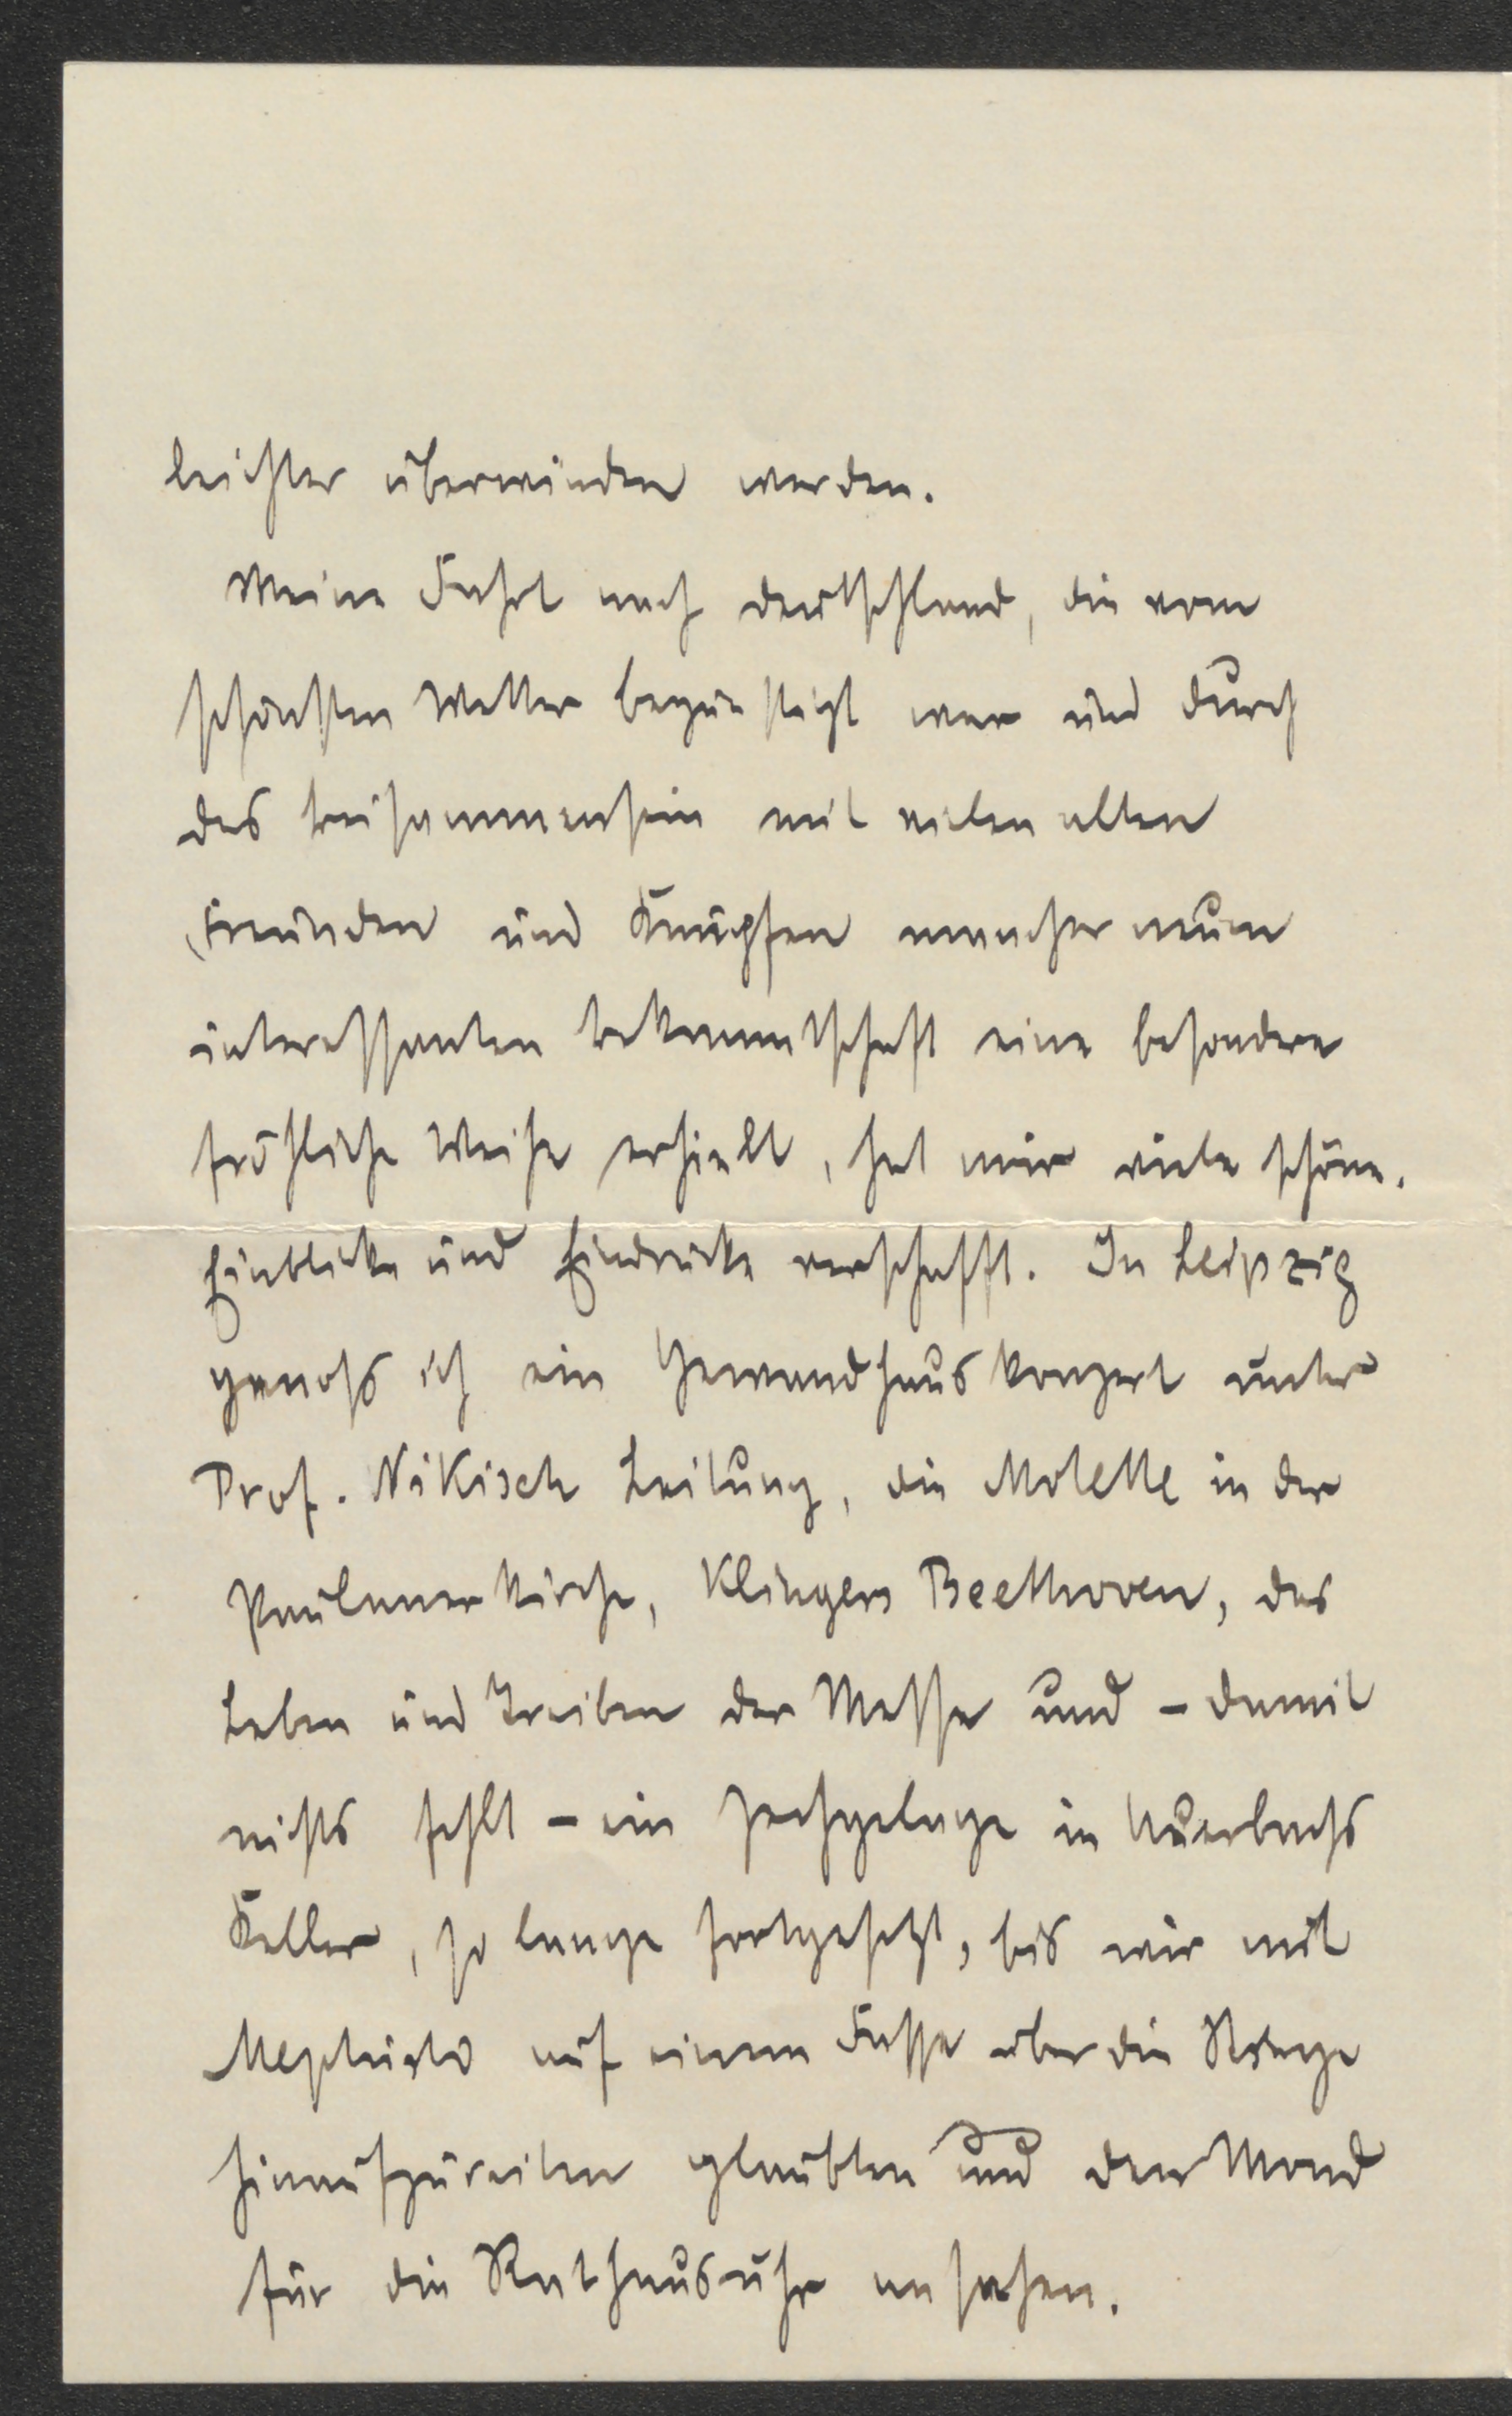 leichter überwinden werden.
Meine Fahrt nach Deutschland, die vom
schönsten Wetter begünstigt war und durch
das beisammensein mit vielen alten
Freunden und Knüpfen mancher neuen
interessanten bekanntschaft eine besondere
fröhliche Weihe erhielt, hat mir viele schöne
Einblicke und Eindrücke verschafft. In Leipzig
genoss ich ein Gewandhauskonzert unter
Prof. Nikisch Leitung, die Motette in der
Paulanerkirche, Klingers Beethoven, das
Leben und Treiben der Messe und – damit
nichts fehlt – ein Zechgelage in Auerbachs
Keller, so lange fortgesetzt, bis wir mit
Mephisto auf einem Fasse über die Stiege
hinaufzureiten glaubten und den Mond
für die Rathausuhr ansahen.